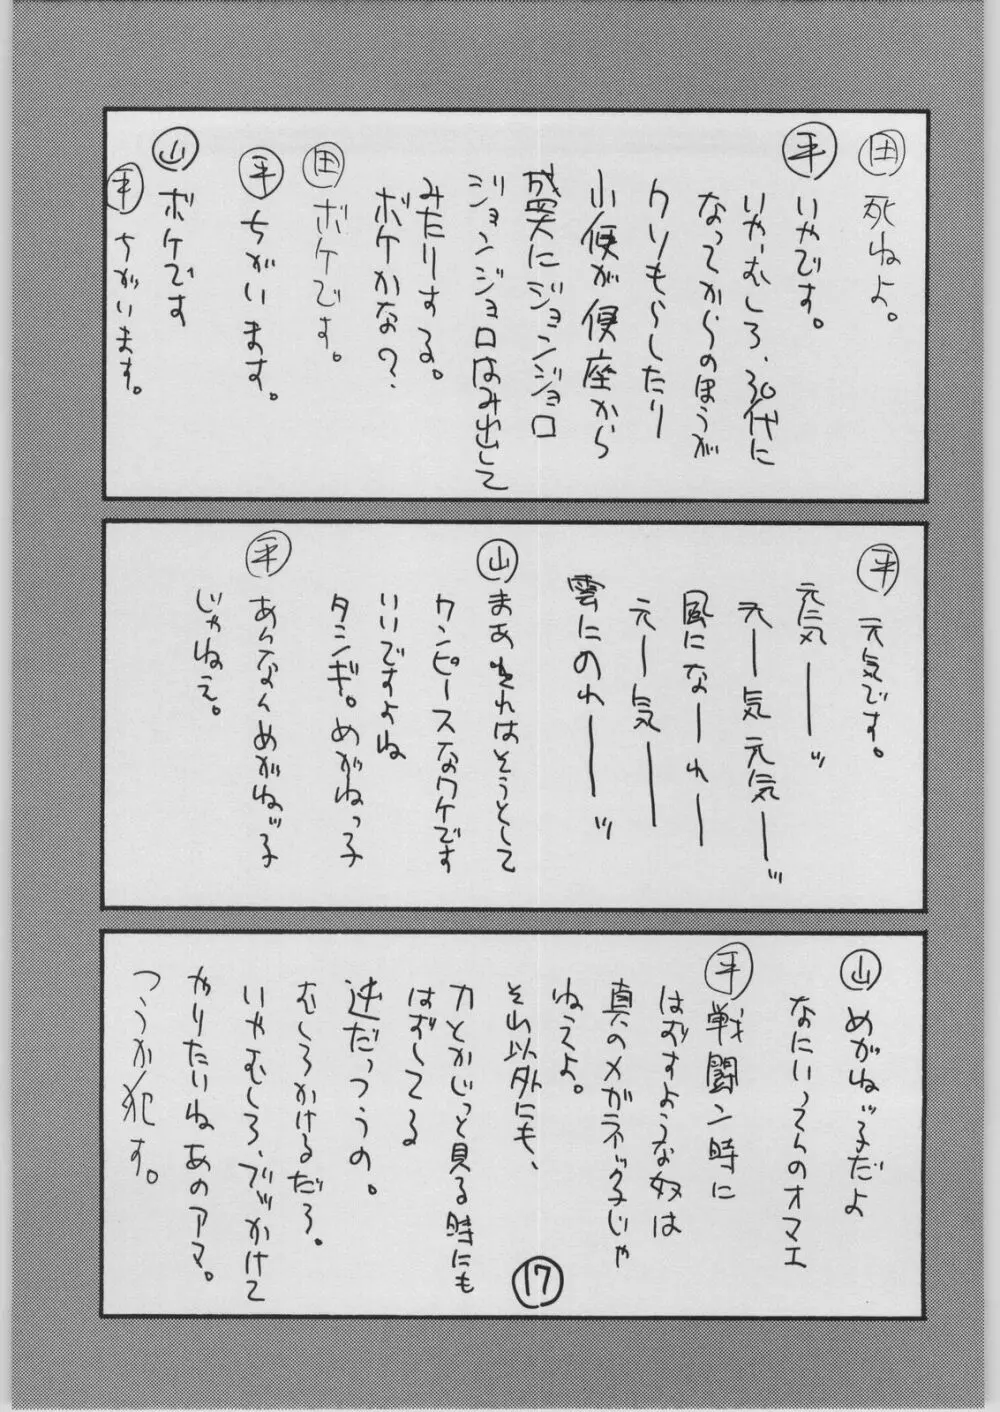 田 死ねよ。
平 いやです。
いや、むしろ、30代に
なってからのほうが
クソもらしたり
小便が便座から
盛大にジョンジョロ
ジョンジョロはみ出して
みたりする。
ボケかな?
田 ボケです。
平 ちがいます。
山 ボケです
平 ちがいます。
平 元気です。
元気──ッ
元─気元気─ッ
風にな─れ─
元─気──
雲にのれ──ッ
山 まあそれはそうとして
ワンピースなワケです
いいですよね
タシギ。めがねっ子
平 あんなんめがねッ子
じゃねえ。
山 めがねッ子だよ
なにいってんのオマエ
平 戦闘ン時に
はずすような奴は
真のメガネッ子じゃ
ねえよ。
それ以外にも、
刀とかじっと見る時にも
はずしてる
逆だっつうの。
むしろかけるだろ。
いやむしろ、ブッかけて
やりたいねあのアマ。
つうか犯す。
17